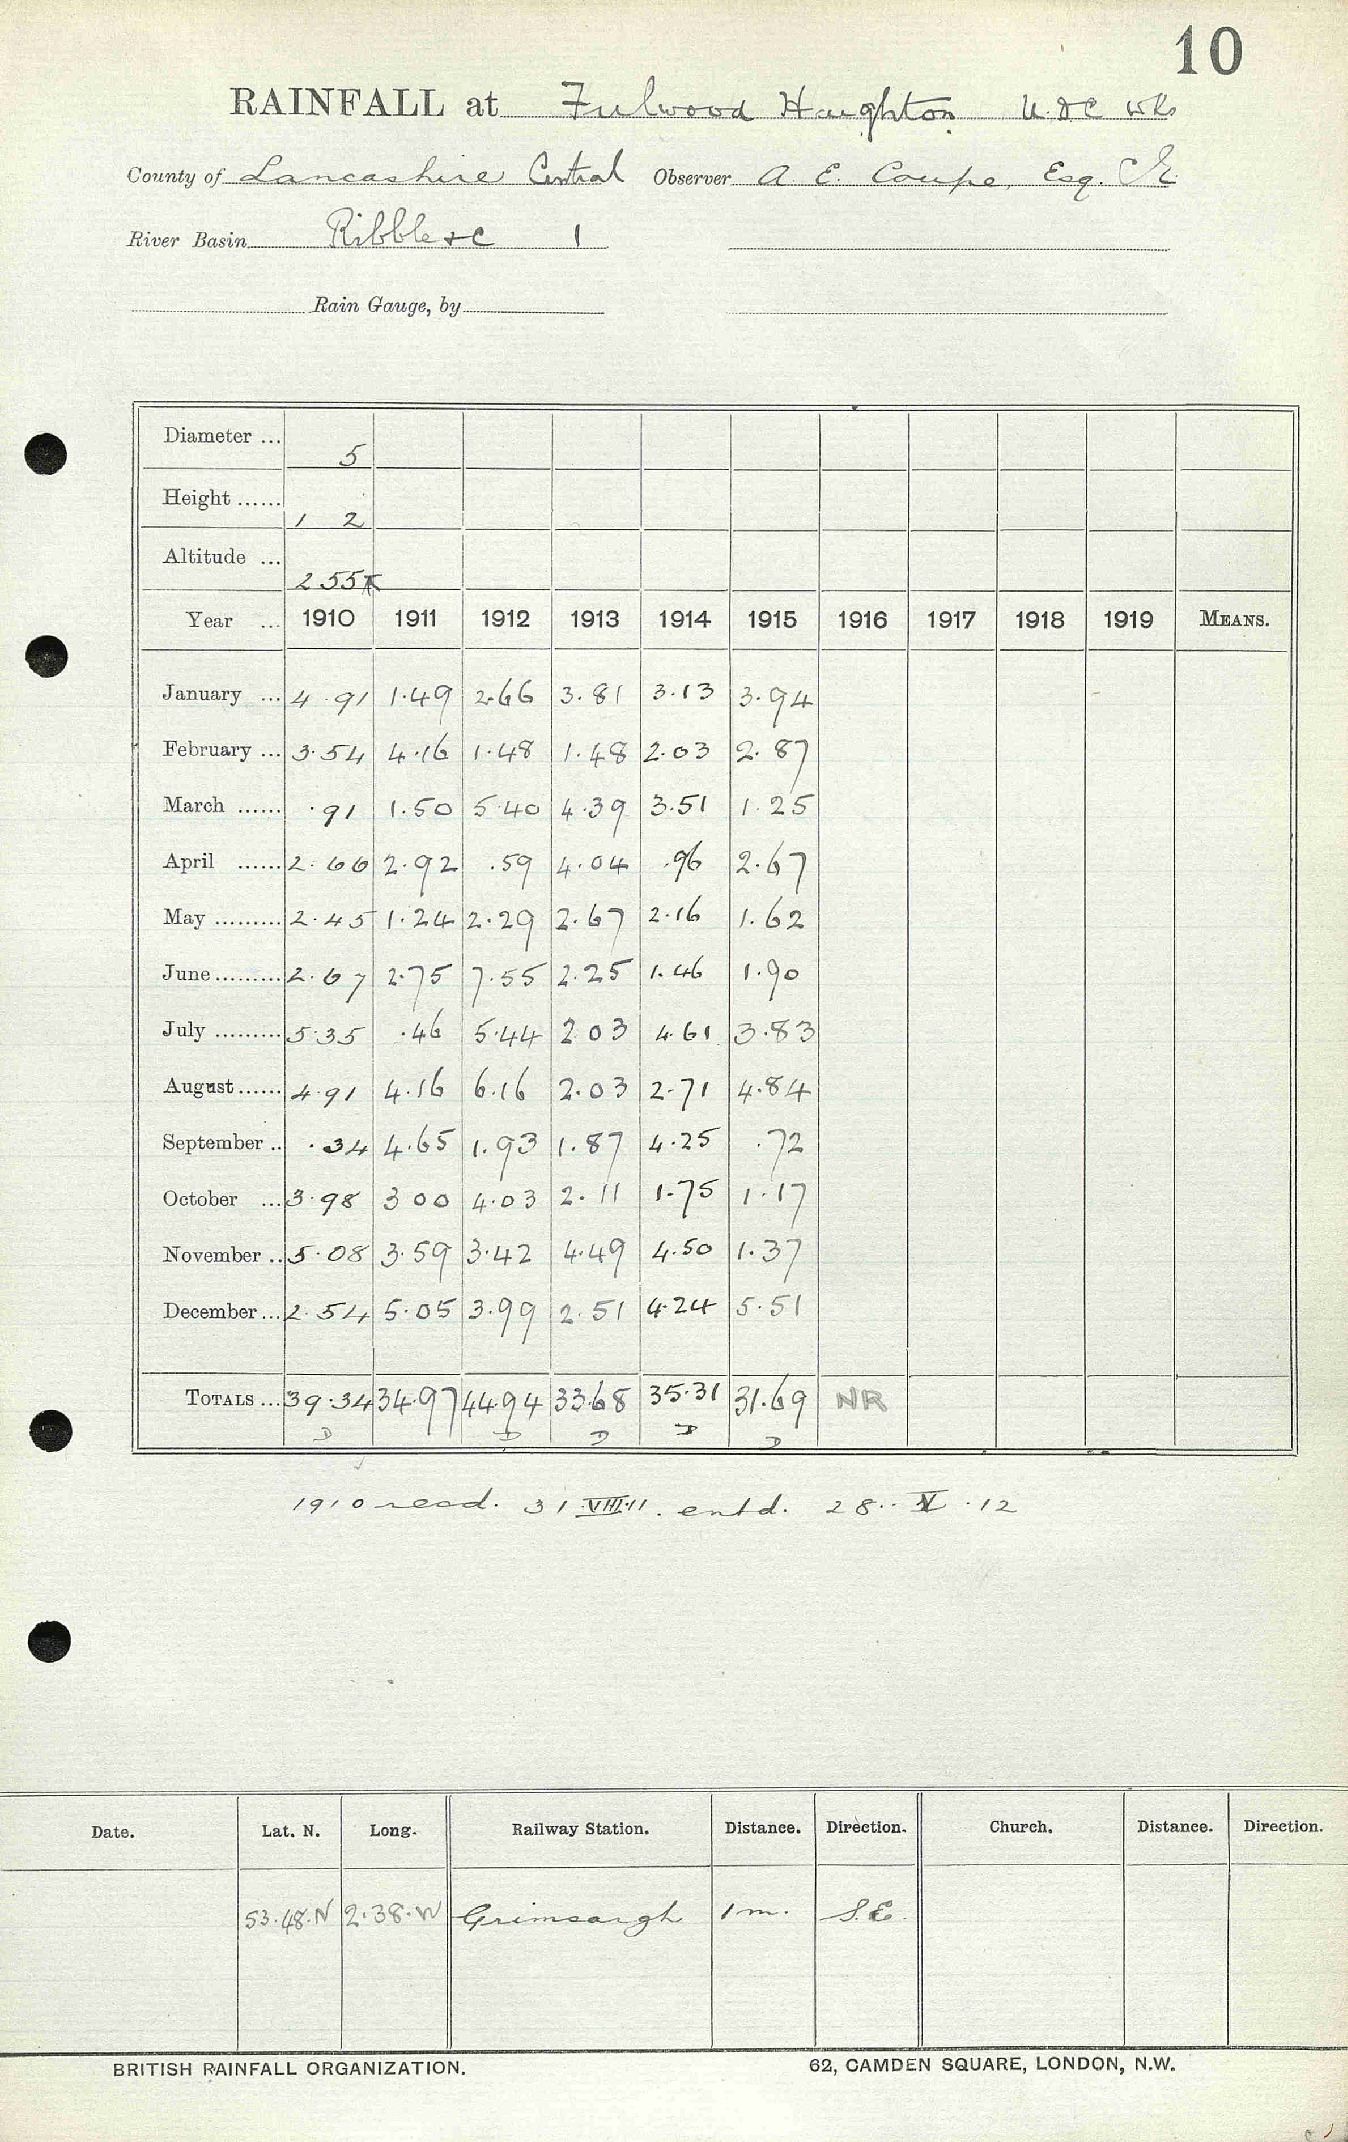 10
RAINFALL at Fulwood Haughton U.D.C Wks
County of Lancashire Central Observer A. E. Coupe, Esq. C.E.
River Basin Ribble &c 1
Rain Gauge, by
Diameter ... 5
Height ...... 1 2
Altitude ... 255
Year ... 1910 1911 1912 1913 1914 1915 1916 1917 1918 1919 MEANS.
January ... 4.91 1.49 2.66 3.81 3.13 3.94
February ... 3.54 4.16 1.48 1.48 2.03 2.87
March ...... .91 1.50 5.40 4.39 3.51 1.25
April ...... 2.66 2.92 .59 4.04 .96 2.67
May ......... 2.45 1.24 2.29 2.67 2.16 1.62
June ......... 2.67 2.75 7.55 2.25 1.46 1.90
July ......... 5.35 .46 5.44 2 03 4.61 3.83
August ...... 4.91 4.16 6.16 2.03 2.71 4.84
September .. .34 4.65 1.93 1.87 4.25 .72
October ... 3.98 3 00 4.03 2.11 1.75 1.17
November .. 5.08 3.59 3.42 4.49 4.50 1.37
December ... 2.54 5.05 3.99 2.51 4.24 5.51
TOTALS ... 39.34 34.97 44.94 33.68 35.31 31.69 NR
D D D D D
1910 recd. 31.VIII.11. entd. 28.V.12
Date. Lat. N. Long. Railway Station. Distance. Direction. Church. Distance. Direction.
53.48.N 2.38.W Grimsargh 1 m. S.E.
BRITISH RAINFALL ORGANIZATION. 62, CAMDEN SQUARE, LONDON, N.W.